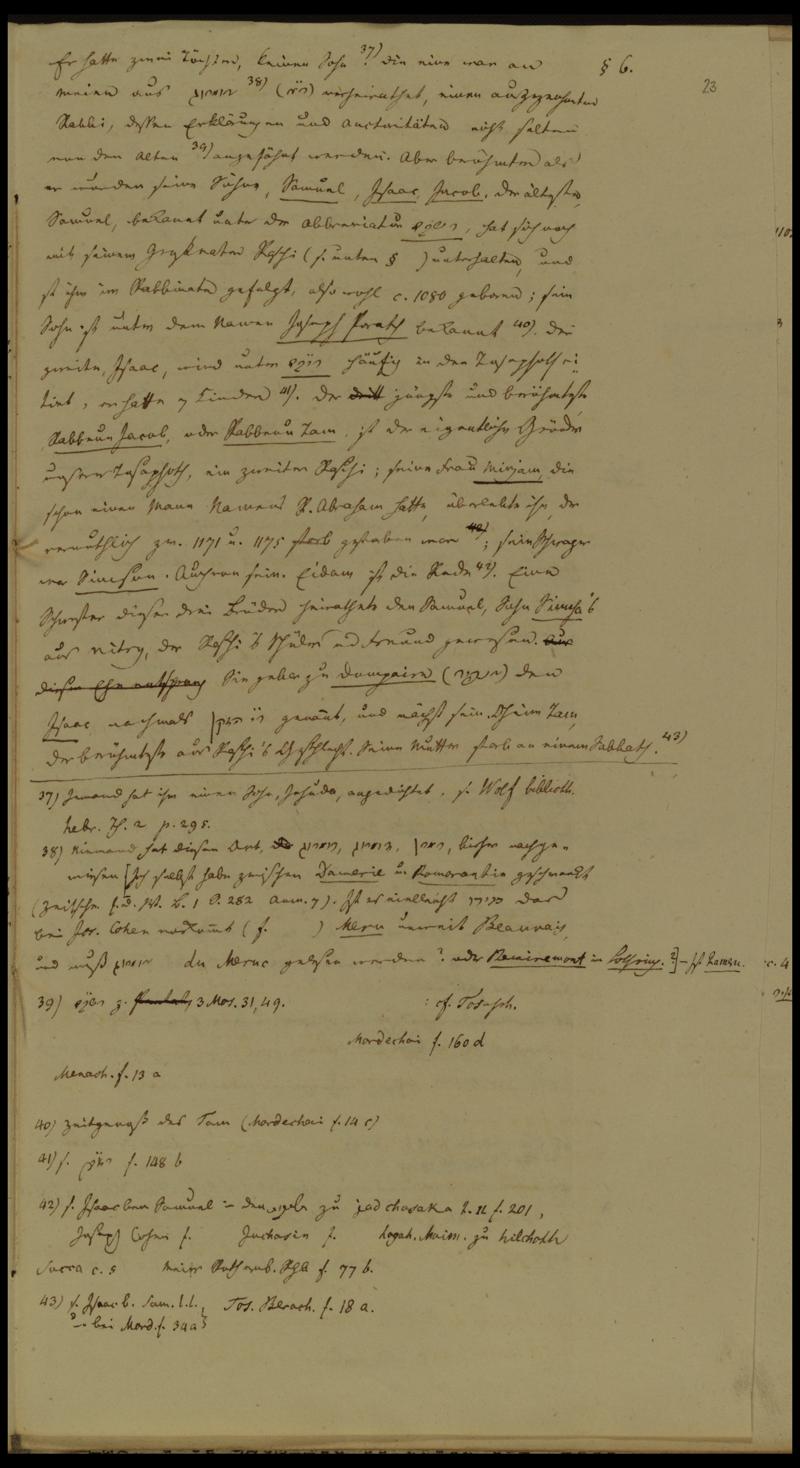 Er hatte zwei Töchter, keinen Sohn 37). die eine war an § 6.
23
meier aus 38) verheirathet, einen ausgezeichneten
Rabbi, dessen Erklärungen und Auctoritäten nicht selten
von den Alten 39) angeführt werden. Aber berühmter als
er wurden seine Söhne, Samuel, Isaac, Jacob. Der älteste,
Samuel, bekannt unter der Abbreviatur רשב״ם, hat sich noch
mit seinem Grosvater Raschi (s. unten § ) unterhalten, und
ist ihm im Rabbinate gefolgt, also wohl c. 1080 geboren; sein
Sohn ist unter dem Namen Joseph Porath bekannt 40). der
zweite, Isaac, wird unter häufig in den Tosaphoth ci-
tirt, er hatte 7 Kinder 41). Der dritt jüngste und berühmteste
Rabbenu Jacob, oder Rabbenu Tam, ist der eigentliche Gründer
unserer Tosaphoth, ein zweiter Raschi; seine Frau Mirjam, die
schon einen Mann Namens R. Abraham hatte, überlebte ihn, der
vermuthlich zw. 1171 u. 1175 starb gestorben war 42); sein Schwager
war Simson. Auch von sein. Eidam ist die Rede 42). Eine
Schwester dieser drei Brüder heirathete den Samuel, Sohn Simcha's
aus Vitry, der Raschi's Schüler und Freund gewesen. Aus
dieser Ehe entsprang Sie gebar zu Dampaire den
Isaac nachmals ר״י הזקן genannt, und nächst sein. Oheim Tam,
der berühmteste aus Raschi's Geschlecht. Seine Mutter starb an einem Sabbath. 43)
37) Jemand hat ihm einen Sohn, Jehuda, angedichtet. s. Wolf biblioth.
hebr. Th. 2 p. 295.
38) Niemand hat diesen Ort, bisher nachge-
wiesen [Ich selbst habe zwischen Damerie u. Romorantin geschwankt
(Zeitschr. f. d. W. B. 1 S. 282 Anm. 7). Ist es vielleicht das
bei Jos. Cohen vorkommt (f. ) Meru unweit Beauvais,
und muß du Meruc gelesen werden? oder Remiremont in Lothring.?] – ist Rameru.
39) רשב״ם z. Pentat. 3 Mos. 31, 49. : cf. Tosaph.
Mordechai f. 160 d
Menach. f. 13 a
40) Zeitgenoß des Tam (Mordechai f. 14 c)
41) s. f. 148 b
42) s. Isaac ben Samuel in den zu jad chasaka f. 201,
Joseph Cohen f. Juchasin f. hagah. Maim. zu hilchoth
Succa c. 5 Meir Rothenb. RGA f. 77 b.
43) s. Isaac b. Sam. l. l., Tos. Berach. f. 18 a.
u. bei Mord. f. 34 a